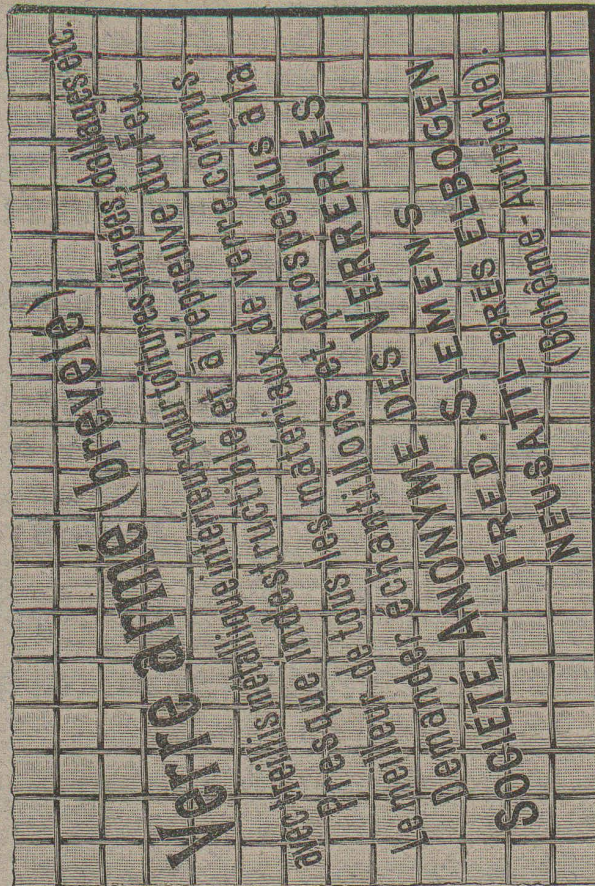 Verre armé (breveté)
avec treillis métallique intérieur pour toitures vitrées, dallages etc.
Presque indestructible et à l'épreuve du feu.
Le meilleur de tous les matériaux de verre connus.
Demander échantillons et prospectus à la
SOCIÉTÉ ANONYME DES VERRERIES
FRED. SIEMENS
NEUSATTL PRÈS ELBOGEN
(Bohême-Autriche).